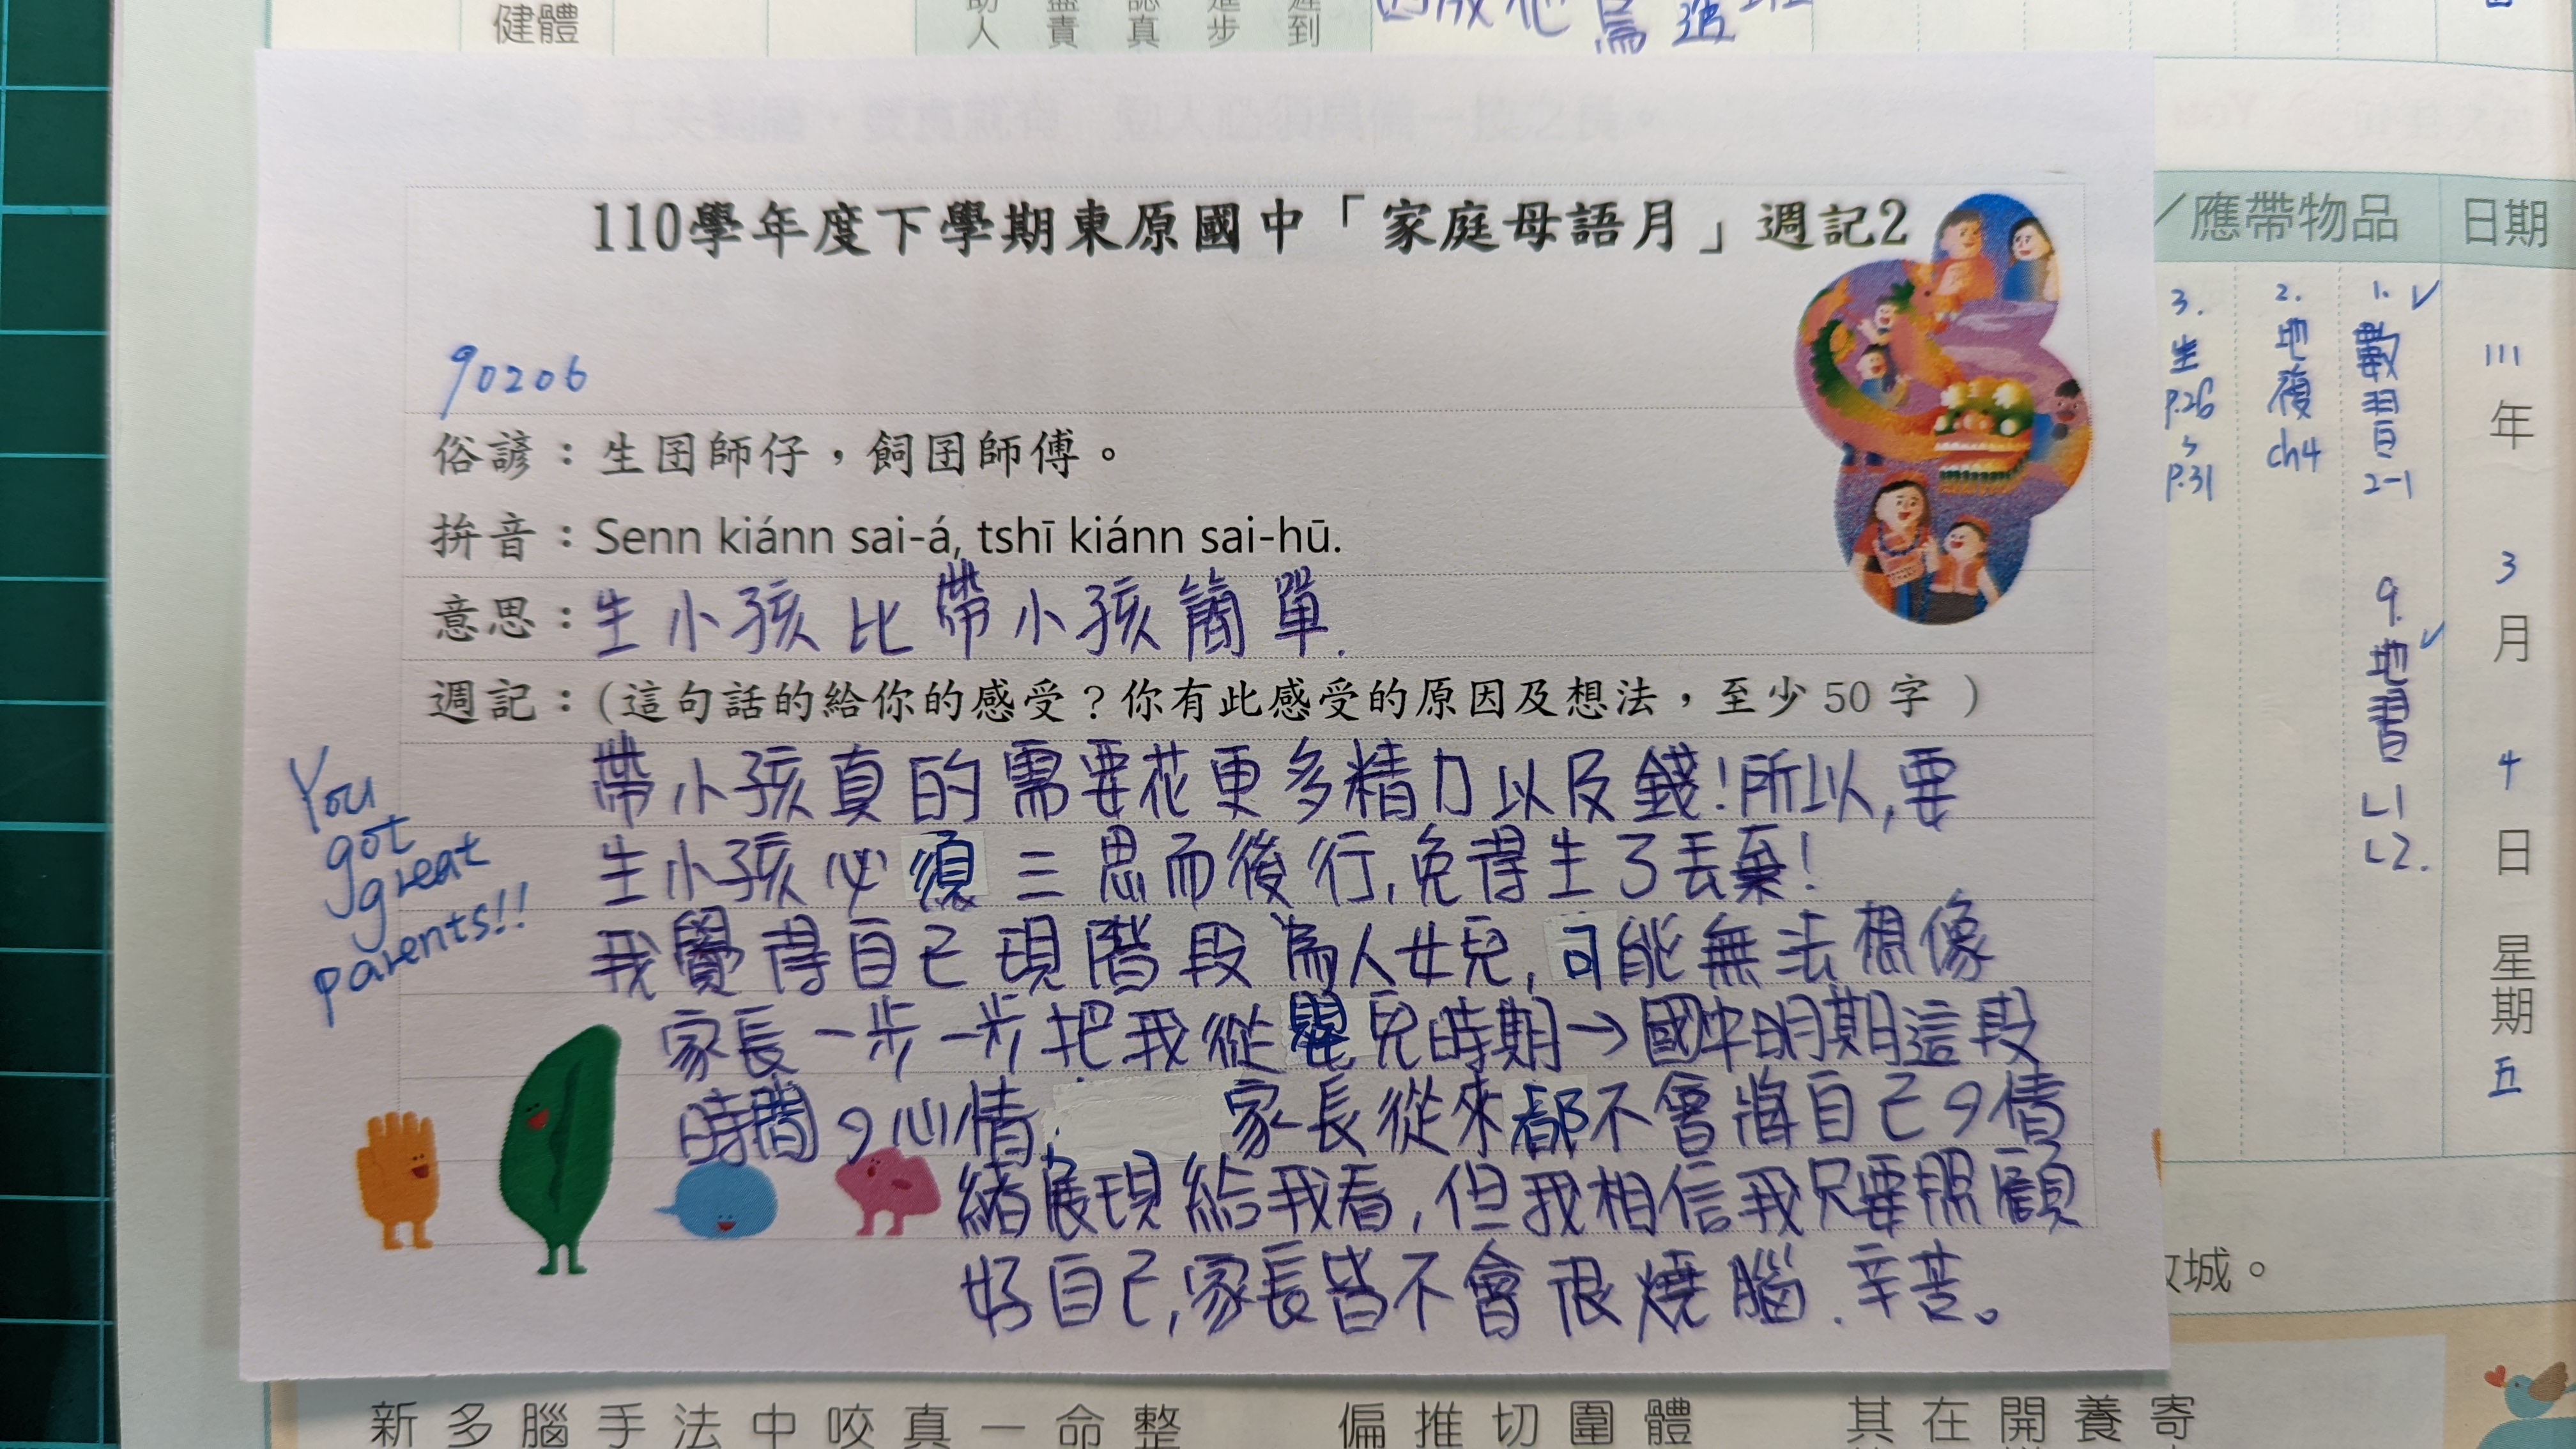 健體
助人
盡責
認真
進步
遲到
110學年度下學期東原國中「家庭母語月」週記2
90206
俗諺：生囝師仔，飼囝師傅。
拼音：Senn kiánn sai-á, tshī kiánn sai-hū.
意思：生小孩比帶小孩簡單.
週記：(這句話的給你的感受？你有此感受的原因及想法，至少 50 字 )
帶小孩真的需要花更多精力以及錢!所以,要
生小孩必須三思而後行,免得生了丟棄!
我覺得自己現階段為人女兒,可能無法想像
家長一步一步把我從嬰兒時期→國中時期這段
時間の心情, 家長從來都不會將自己の情
緒展現給我看,但我相信我只要照顧
好自己,家長皆不會很燒腦.辛苦。
You
got
great
parents!!
／應帶物品
日期
111年3月4日星期五
1.數習2-1
2.地復ch4
3.生P.26~P.31
9.地書L1 L2.
城。
新多腦手法中咬真一命整
偏推切圍體
其在開養寄